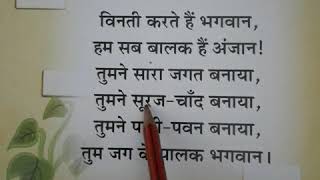 विनती करते हैं भगवान,
हम सब बालक हैं अंजान!
तुमने सारा जगत बनाया,
तुमने सूरज-चाँद बनाया,
तुमने -पवन बनाया,
तुम जग पालक भगवान।